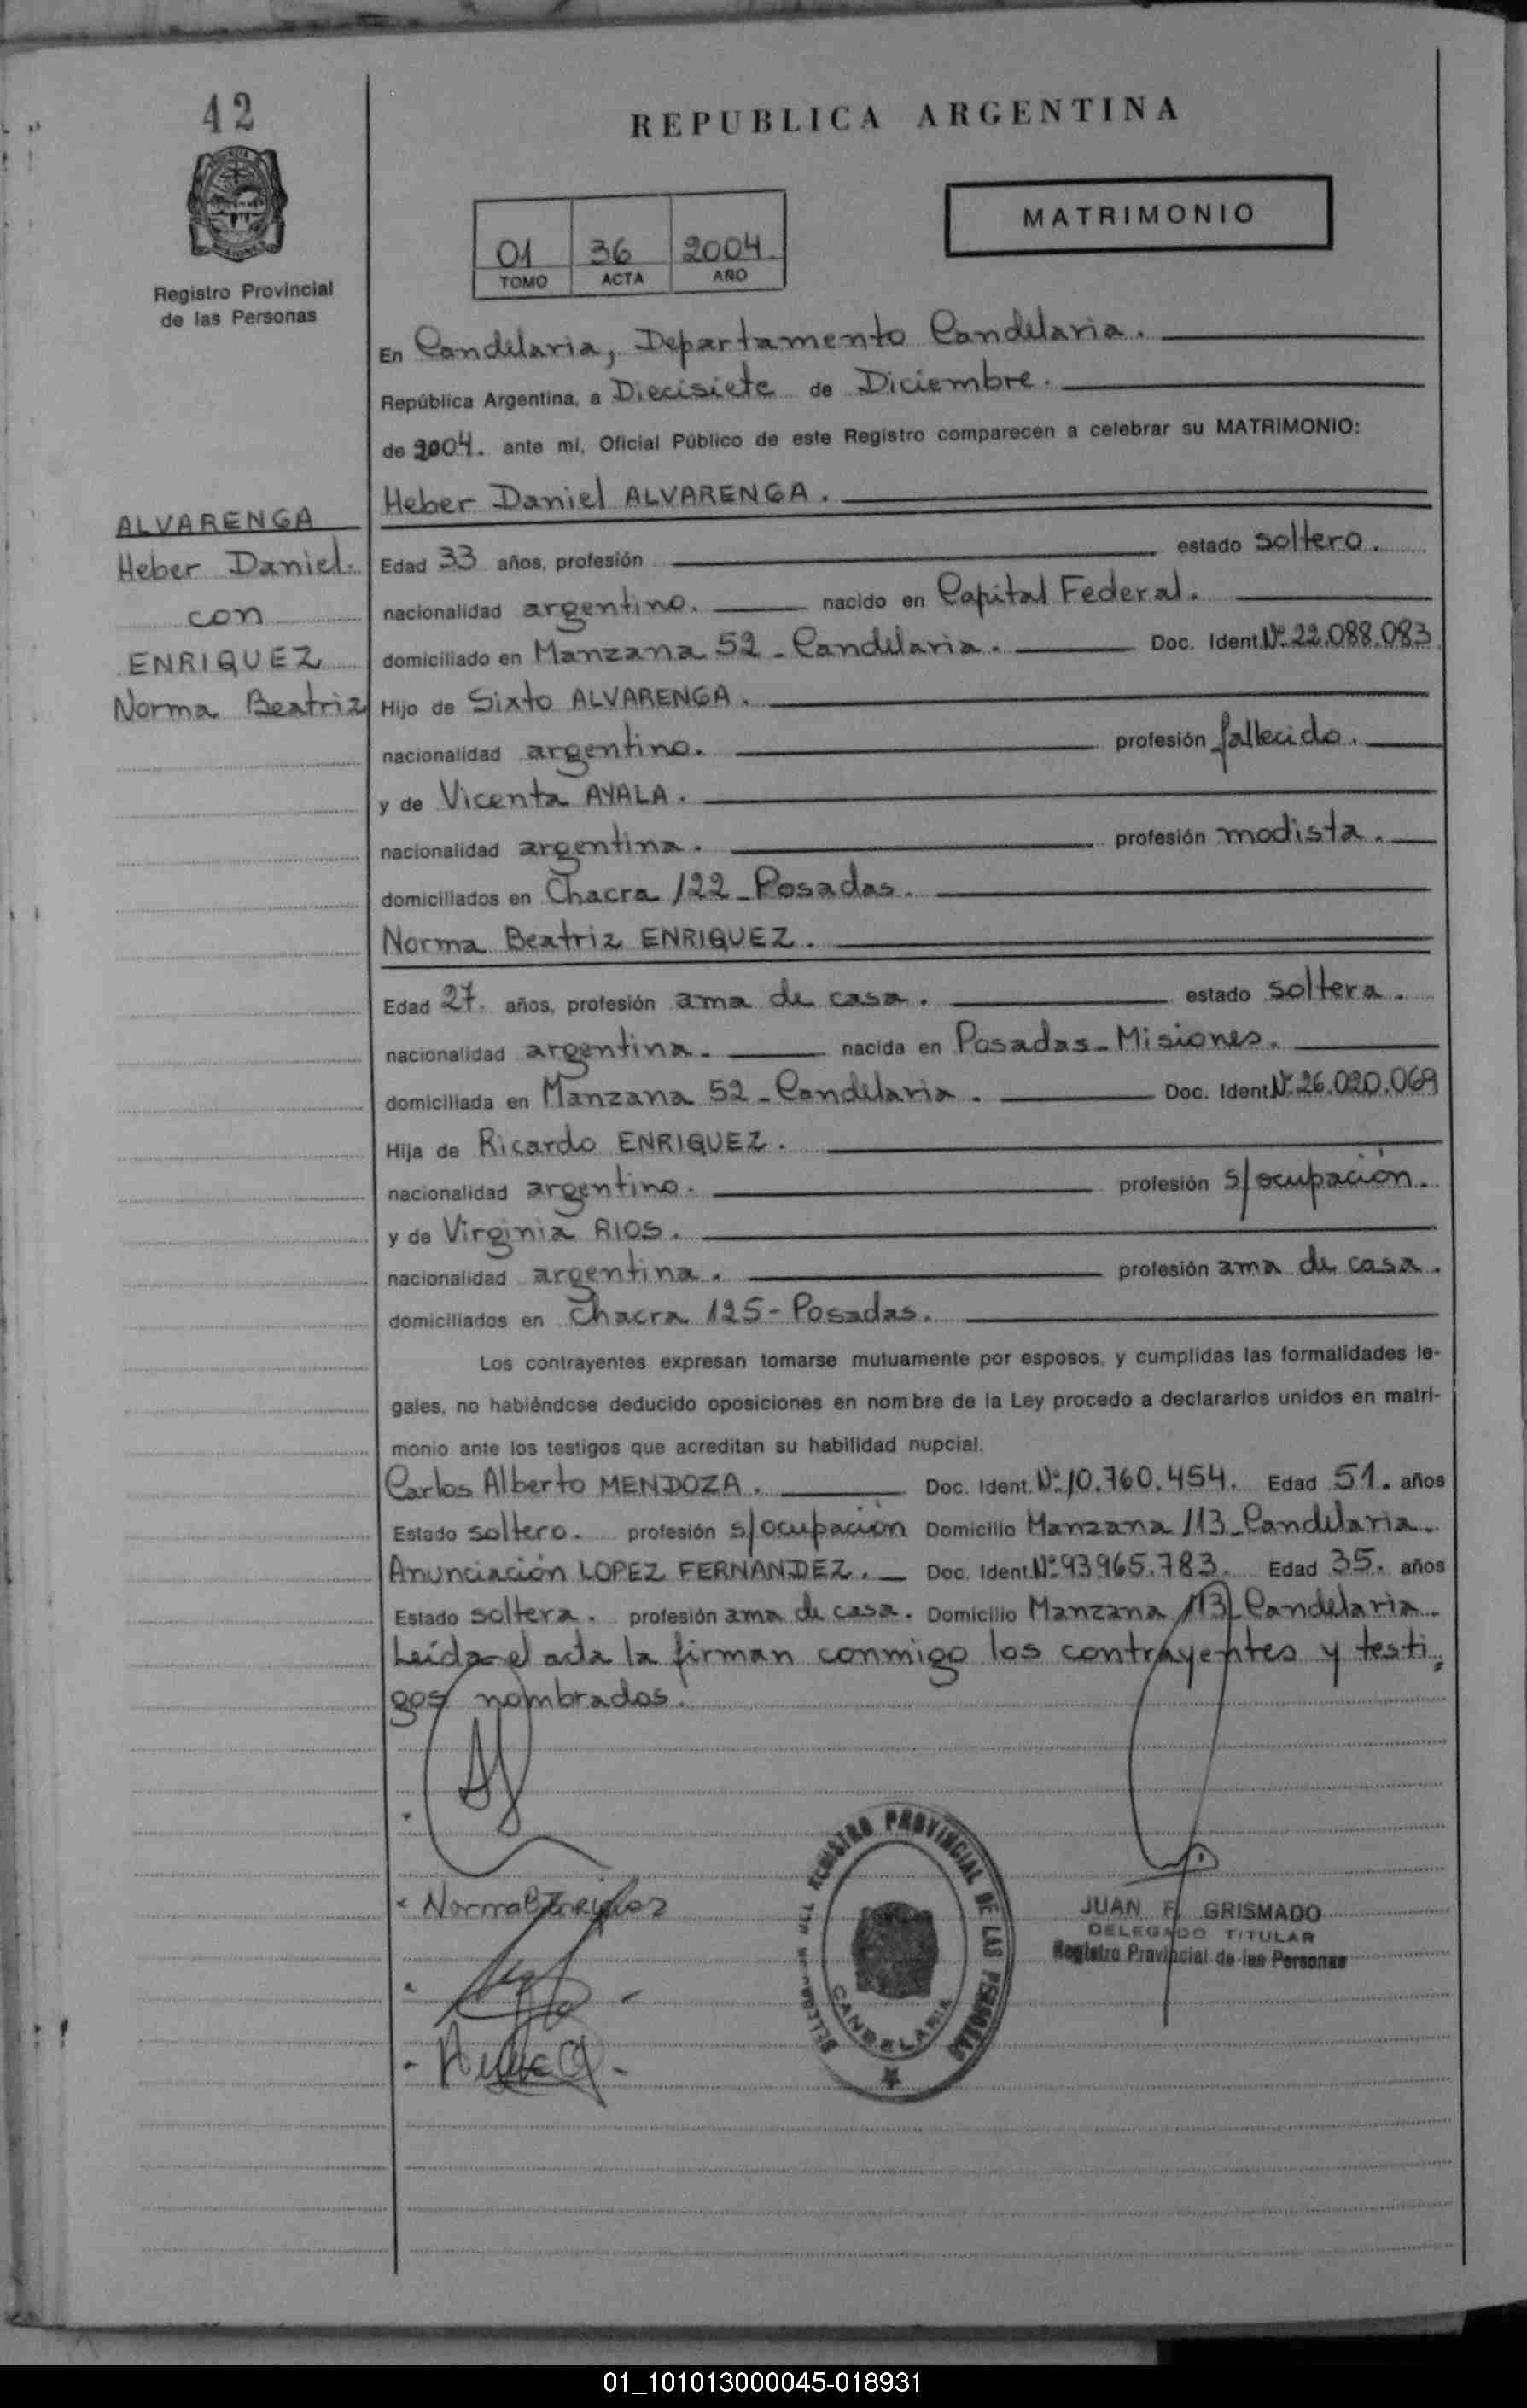 42
Registro Provincial
de las Personas
REPUBLICA ARGENTINA
MATRIMONIO
01 36 2004
TOMO ACTA AÑO
En Candelaria, Departamento Candelaria.
República Argentina, a Diecisiete de Diciembre.
de 2004. ante mí, Oficial Público de este Registro comparecen a celebrar su MATRIMONIO:
ALVARENGA
Heber Daniel.
con
ENRIQUEZ
Norma Beatriz
Heber Daniel ALVARENGA.
Edad 33 años, profesión estado soltero.
nacionalidad argentino. nacido en Capital Federal.
domiciliado en Manzana 52 - Candelaria. Doc. Ident. Nº 22.088.083
Hijo de Sixto ALVARENGA.
nacionalidad argentino. profesión fallecido.
y de Vicenta AYALA.
nacionalidad argentina. profesión modista.
domiciliados en Chacra 122 - Posadas.
Norma Beatriz ENRIQUEZ.
Edad 27. años, profesión ama de casa. estado soltera.
nacionalidad argentina. nacida en Posadas - Misiones.
domiciliada en Manzana 52 - Candelaria. Doc. Ident. Nº 26.020.069
Hija de Ricardo ENRIQUEZ.
nacionalidad argentino. profesión s/ocupación.
y de Virginia RIOS.
nacionalidad argentina. profesión ama de casa.
domiciliados en Chacra 125 - Posadas.
Los contrayentes expresan tomarse mutuamente por esposos, y cumplidas las formalidades le-
gales, no habiéndose deducido oposiciones en nombre de la Ley procedo a declararlos unidos en matri-
monio ante los testigos que acreditan su habilidad nupcial.
Carlos Alberto MENDOZA. Doc. Ident. Nº 10.760.454. Edad 51. años
Estado soltero. profesión s/ocupación Domicilio Manzana 113 - Candelaria.
Anunciación LOPEZ FERNANDEZ. Doc. Ident. Nº 93965.783. Edad 35. años
Estado soltera. profesión ama de casa. Domicilio Manzana 113 - Candelaria.
Leída el acta la firman conmigo los contrayentes y testi-
gos nombrados.
REGISTRO PROVINCIAL DE LAS PERSONAS
CANDELARIA
JUAN F. GRISMADO
DELEGADO TITULAR
Registro Provincial de las Personas
01_101013000045-018931